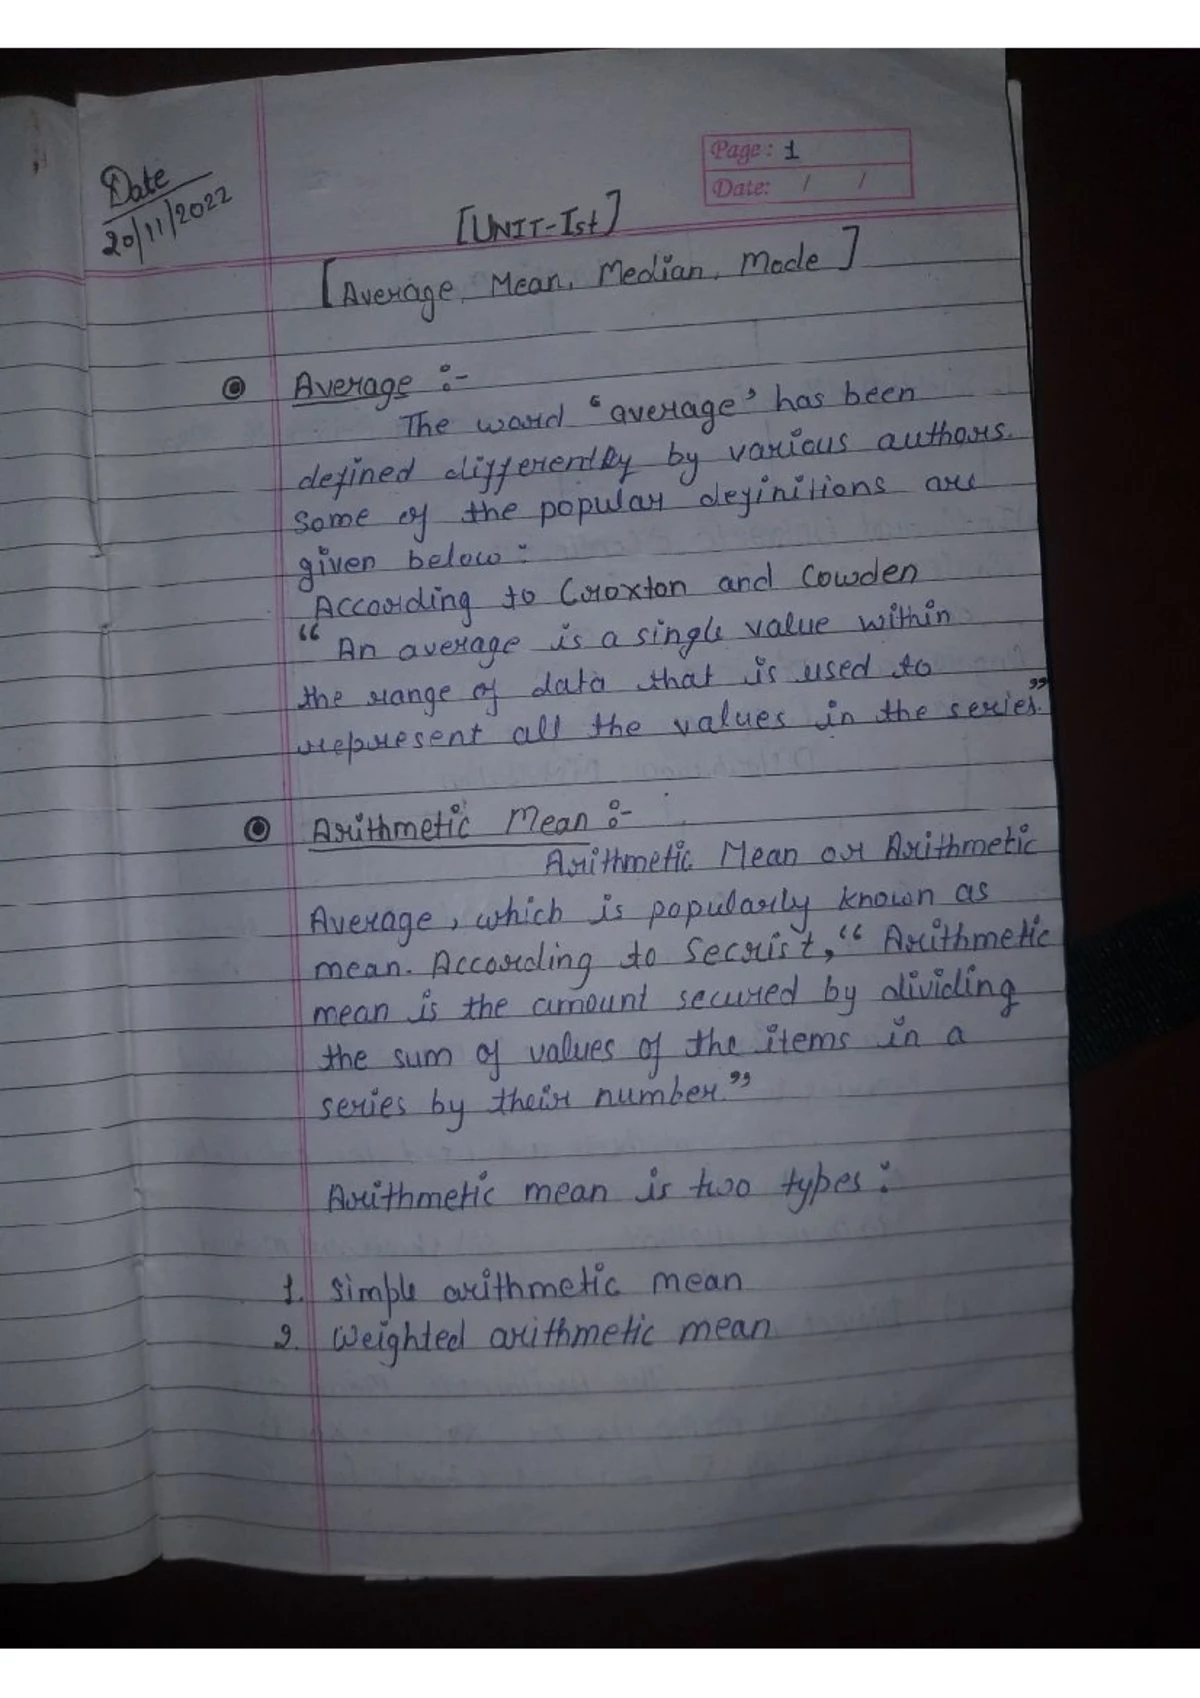 Page: 1
Date: / /
Date
20/11/2022
[UNIT-Ist]
[Average, Mean, Median, Mode]
Average :-
The word "average" has been
defined differently by various authors.
Some of the popular definitions are
given below:
According to Croxton and Cowden
" An average is a single value within
the range of data that is used to
represent all the values in the series."
Arithmetic Mean :-
Arithmetic Mean or Arithmetic
Average, which is popularly known as
mean. According to Secrist, " Arithmetic
mean is the amount secured by dividing
the sum of values of the items in a
series by their number."
Arithmetic mean is two types:
1. Simple arithmetic mean
2. Weighted arithmetic mean